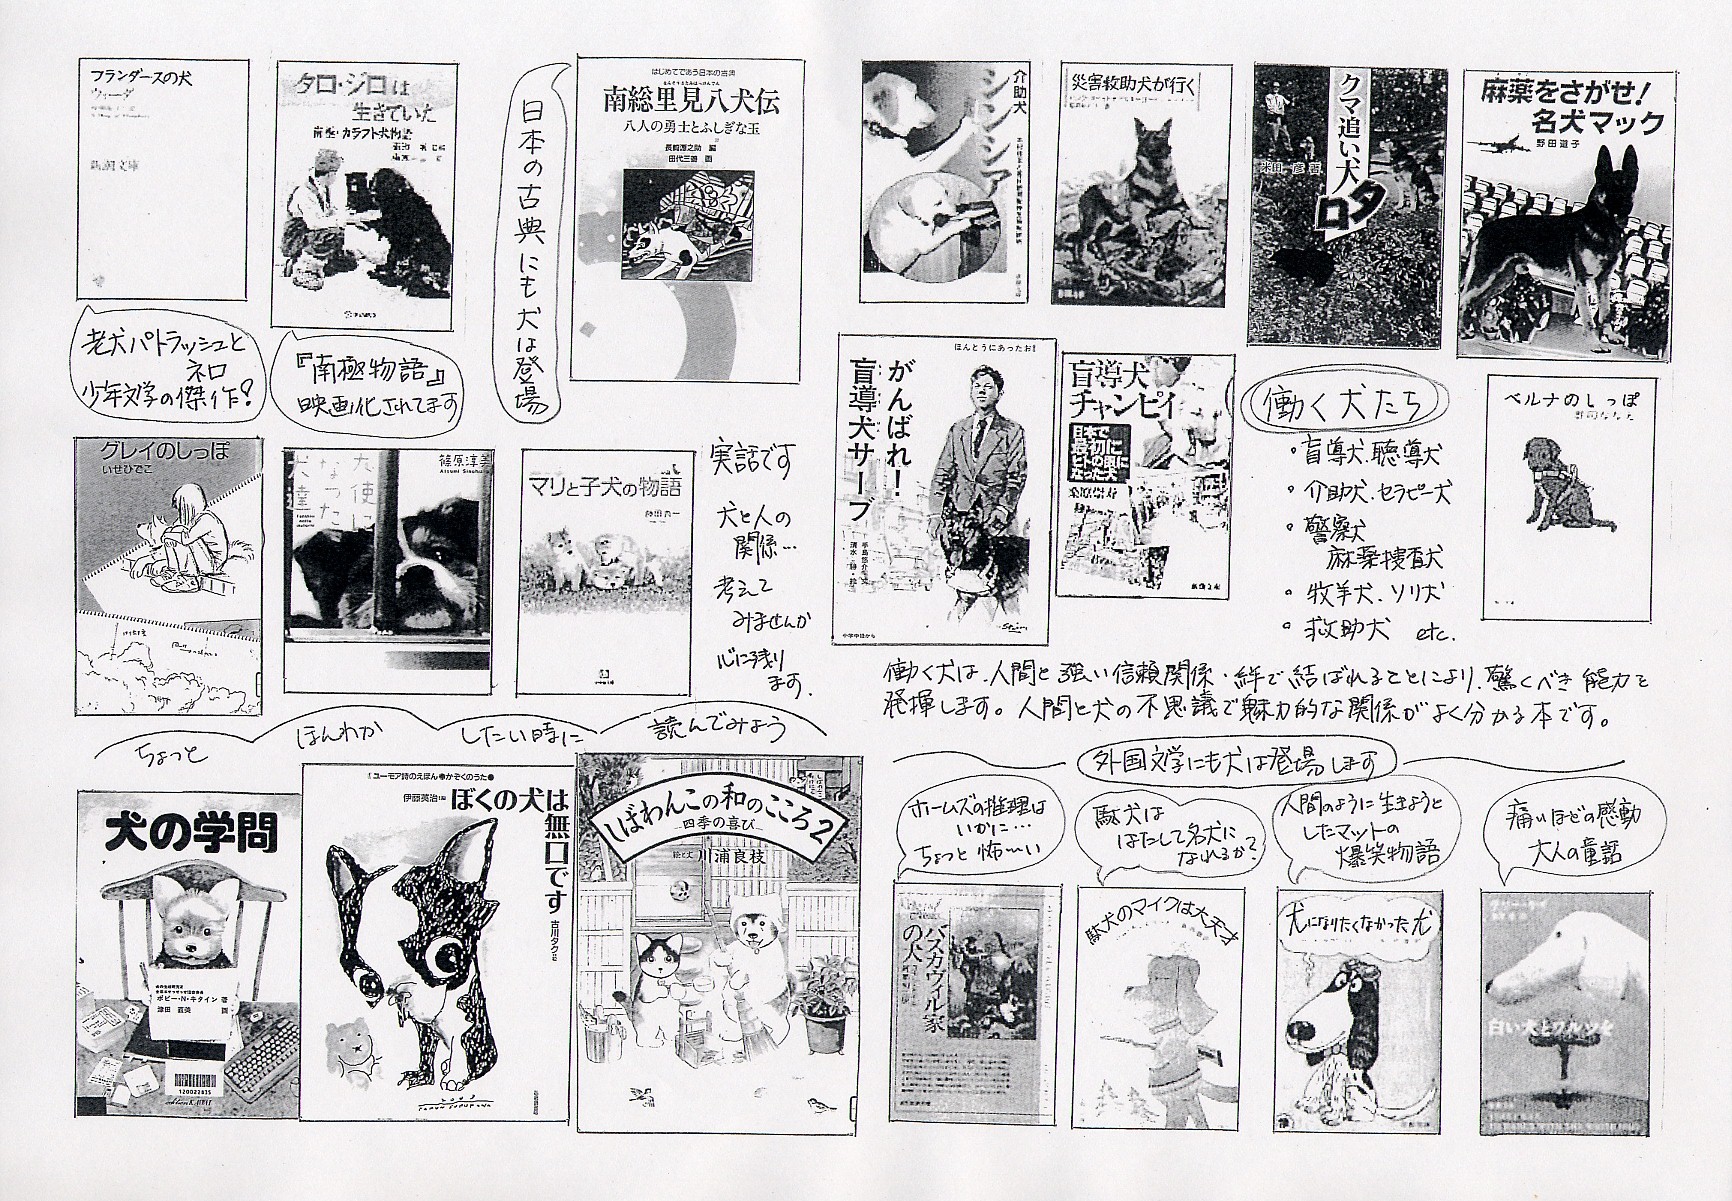 フランダースの犬
ウィーダ
新潮文庫
老犬パトラッシュと
ネロ
少年文学の傑作!
タロ・ジロは
生きていた
南極・カラフト犬物語
『南極物語』
映画化されてます
日本の古典にも犬は登場
はじめてであう日本の古典
南総里見八犬伝
八人の勇士とふしぎな玉
長崎源之助 編
田代三善 画
グレイのしっぽ
いせひでこ
天使に
なった
犬達
篠原淳美
Atsumi Sinohara
マリと子犬の物語
実話です
犬と人の
関係…
考えて
みませんか
心に残り
ます.
ちょっと ほんわか したい時に 読んでみよう
犬の学問
ボビー・N・キタイン 著
津田直美 画
ユーモア詩のえほん●かぞくのうた●
伊藤英治 編
ぼくの犬は
無口です
古川タク 絵
しばわんこの和のこころ2
―四季の喜び―
絵と文 川浦良枝
介助犬
シンシア
災害救助犬が行く
クマ追い犬
タロ
米田一彦 著
麻薬をさがせ!
名犬マック
野田道子
ほんとうにあったお
がんばれ!
盲導犬サーブ
手島悠介・文
清水勝・絵
小学中級から
盲導犬
チャンピイ
日本で
最初に
ヒトの眼に
なった犬
桑原崇寿
働く犬たち
・盲導犬.聴導犬
・介助犬.セラピー犬
・警察犬
麻薬捜査犬
・牧羊犬.ソリ犬
・救助犬 etc.
ベルナのしっぽ
働く犬は.人間と強い信頼関係・絆で結ばれることにより.驚くべき能力を
発揮します。人間と犬の不思議で魅力的な関係がよく分かる本です。
外国文学にも犬は登場します
ホームズの推理は
いかに…
ちょっと怖〜い
バスカヴィル家
の犬
駄犬は
はたして名犬に
なれるか?
駄犬のマイクは犬天才
人間のように生きようと
したマットの
爆笑物語
犬になりたくなかった犬
痛いほどの感動
大人の童話
白い犬とワルツを